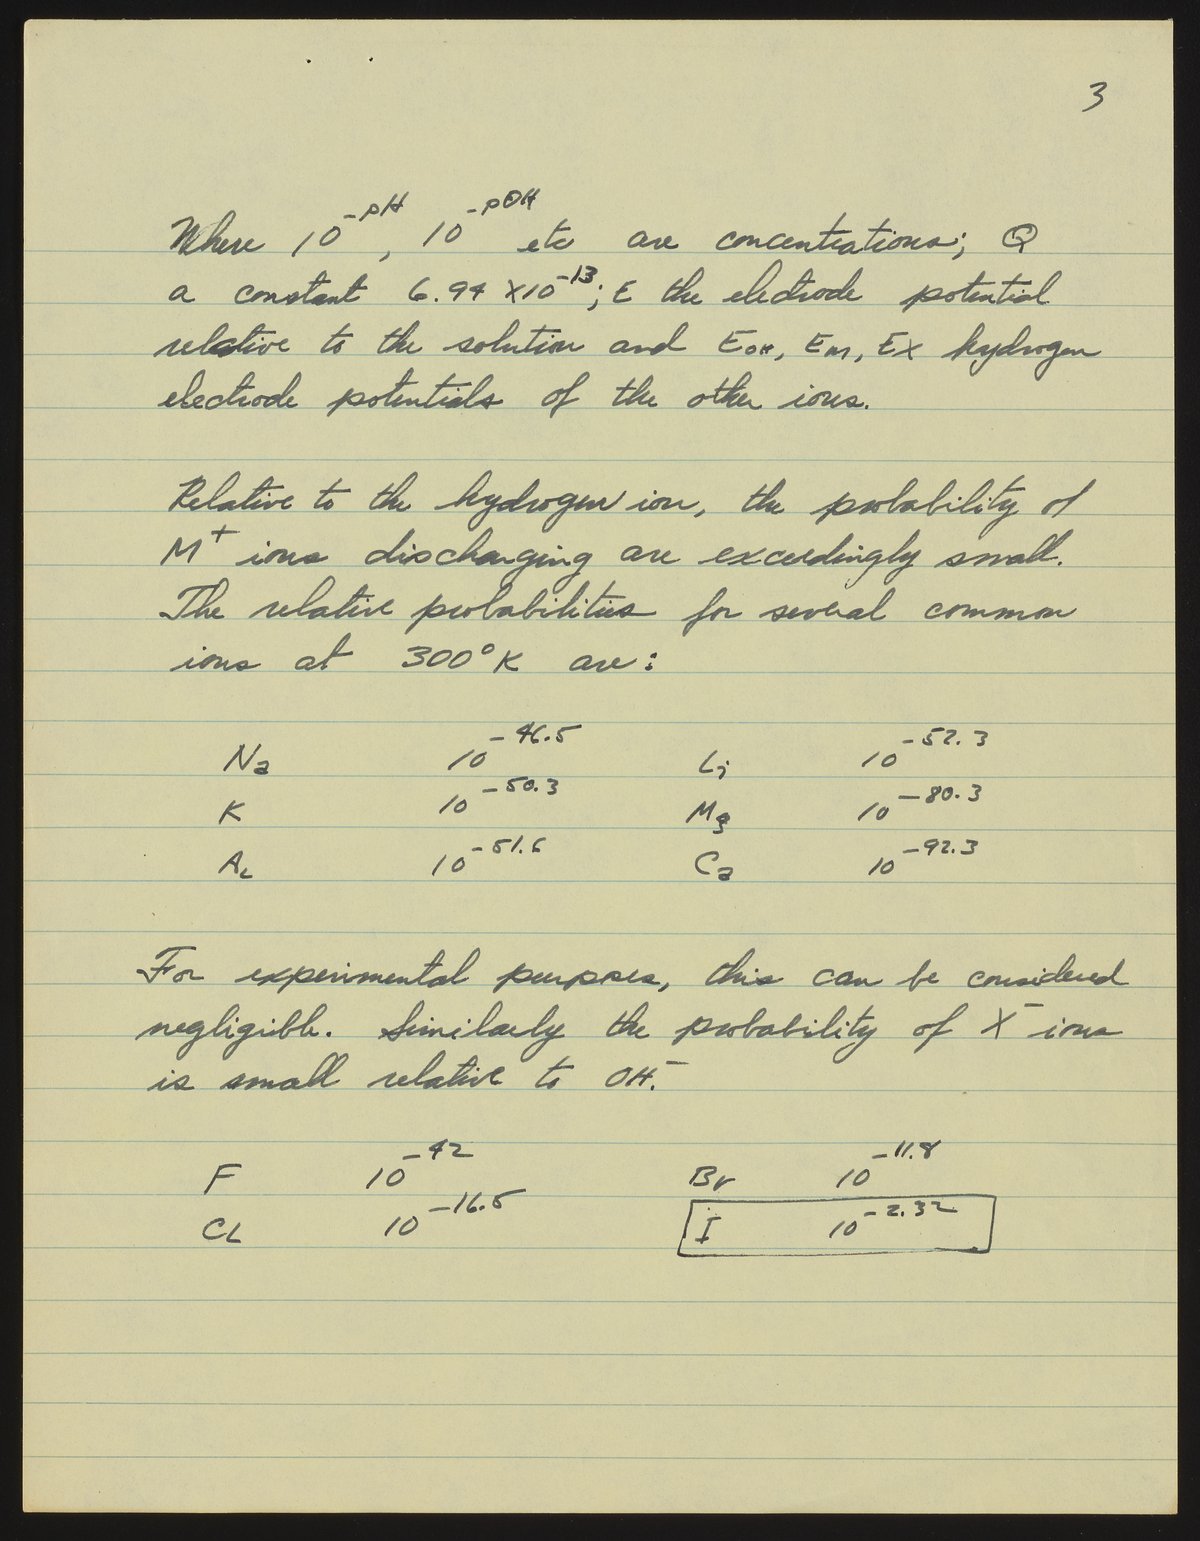 3
Where 10^-pH, 10^-pOH etc are concentrations; Q
a constant 6.94 X10^-13; E the electrode potential
relative to the solution and EOH, EM, EX hydrogen
electrode potentials of the other ions.
Relative to the hydrogen ion, the probability of
M+ ions discharging are exceedingly small.
The relative probabilities for several common
ions at 300°K are:
Na 10^-46.5 Li 10^-52.3
K 10^-50.3 Mg 10^-80.3
10^-51.5 Ca 10^-92.3
For experimental purposes, this can be considered
negligible. Similarly the probability of X- ions
is small relative to OH-.
F 10^-42 Br 10^-11.8
CL 10^-16.5 I 10^-2.32